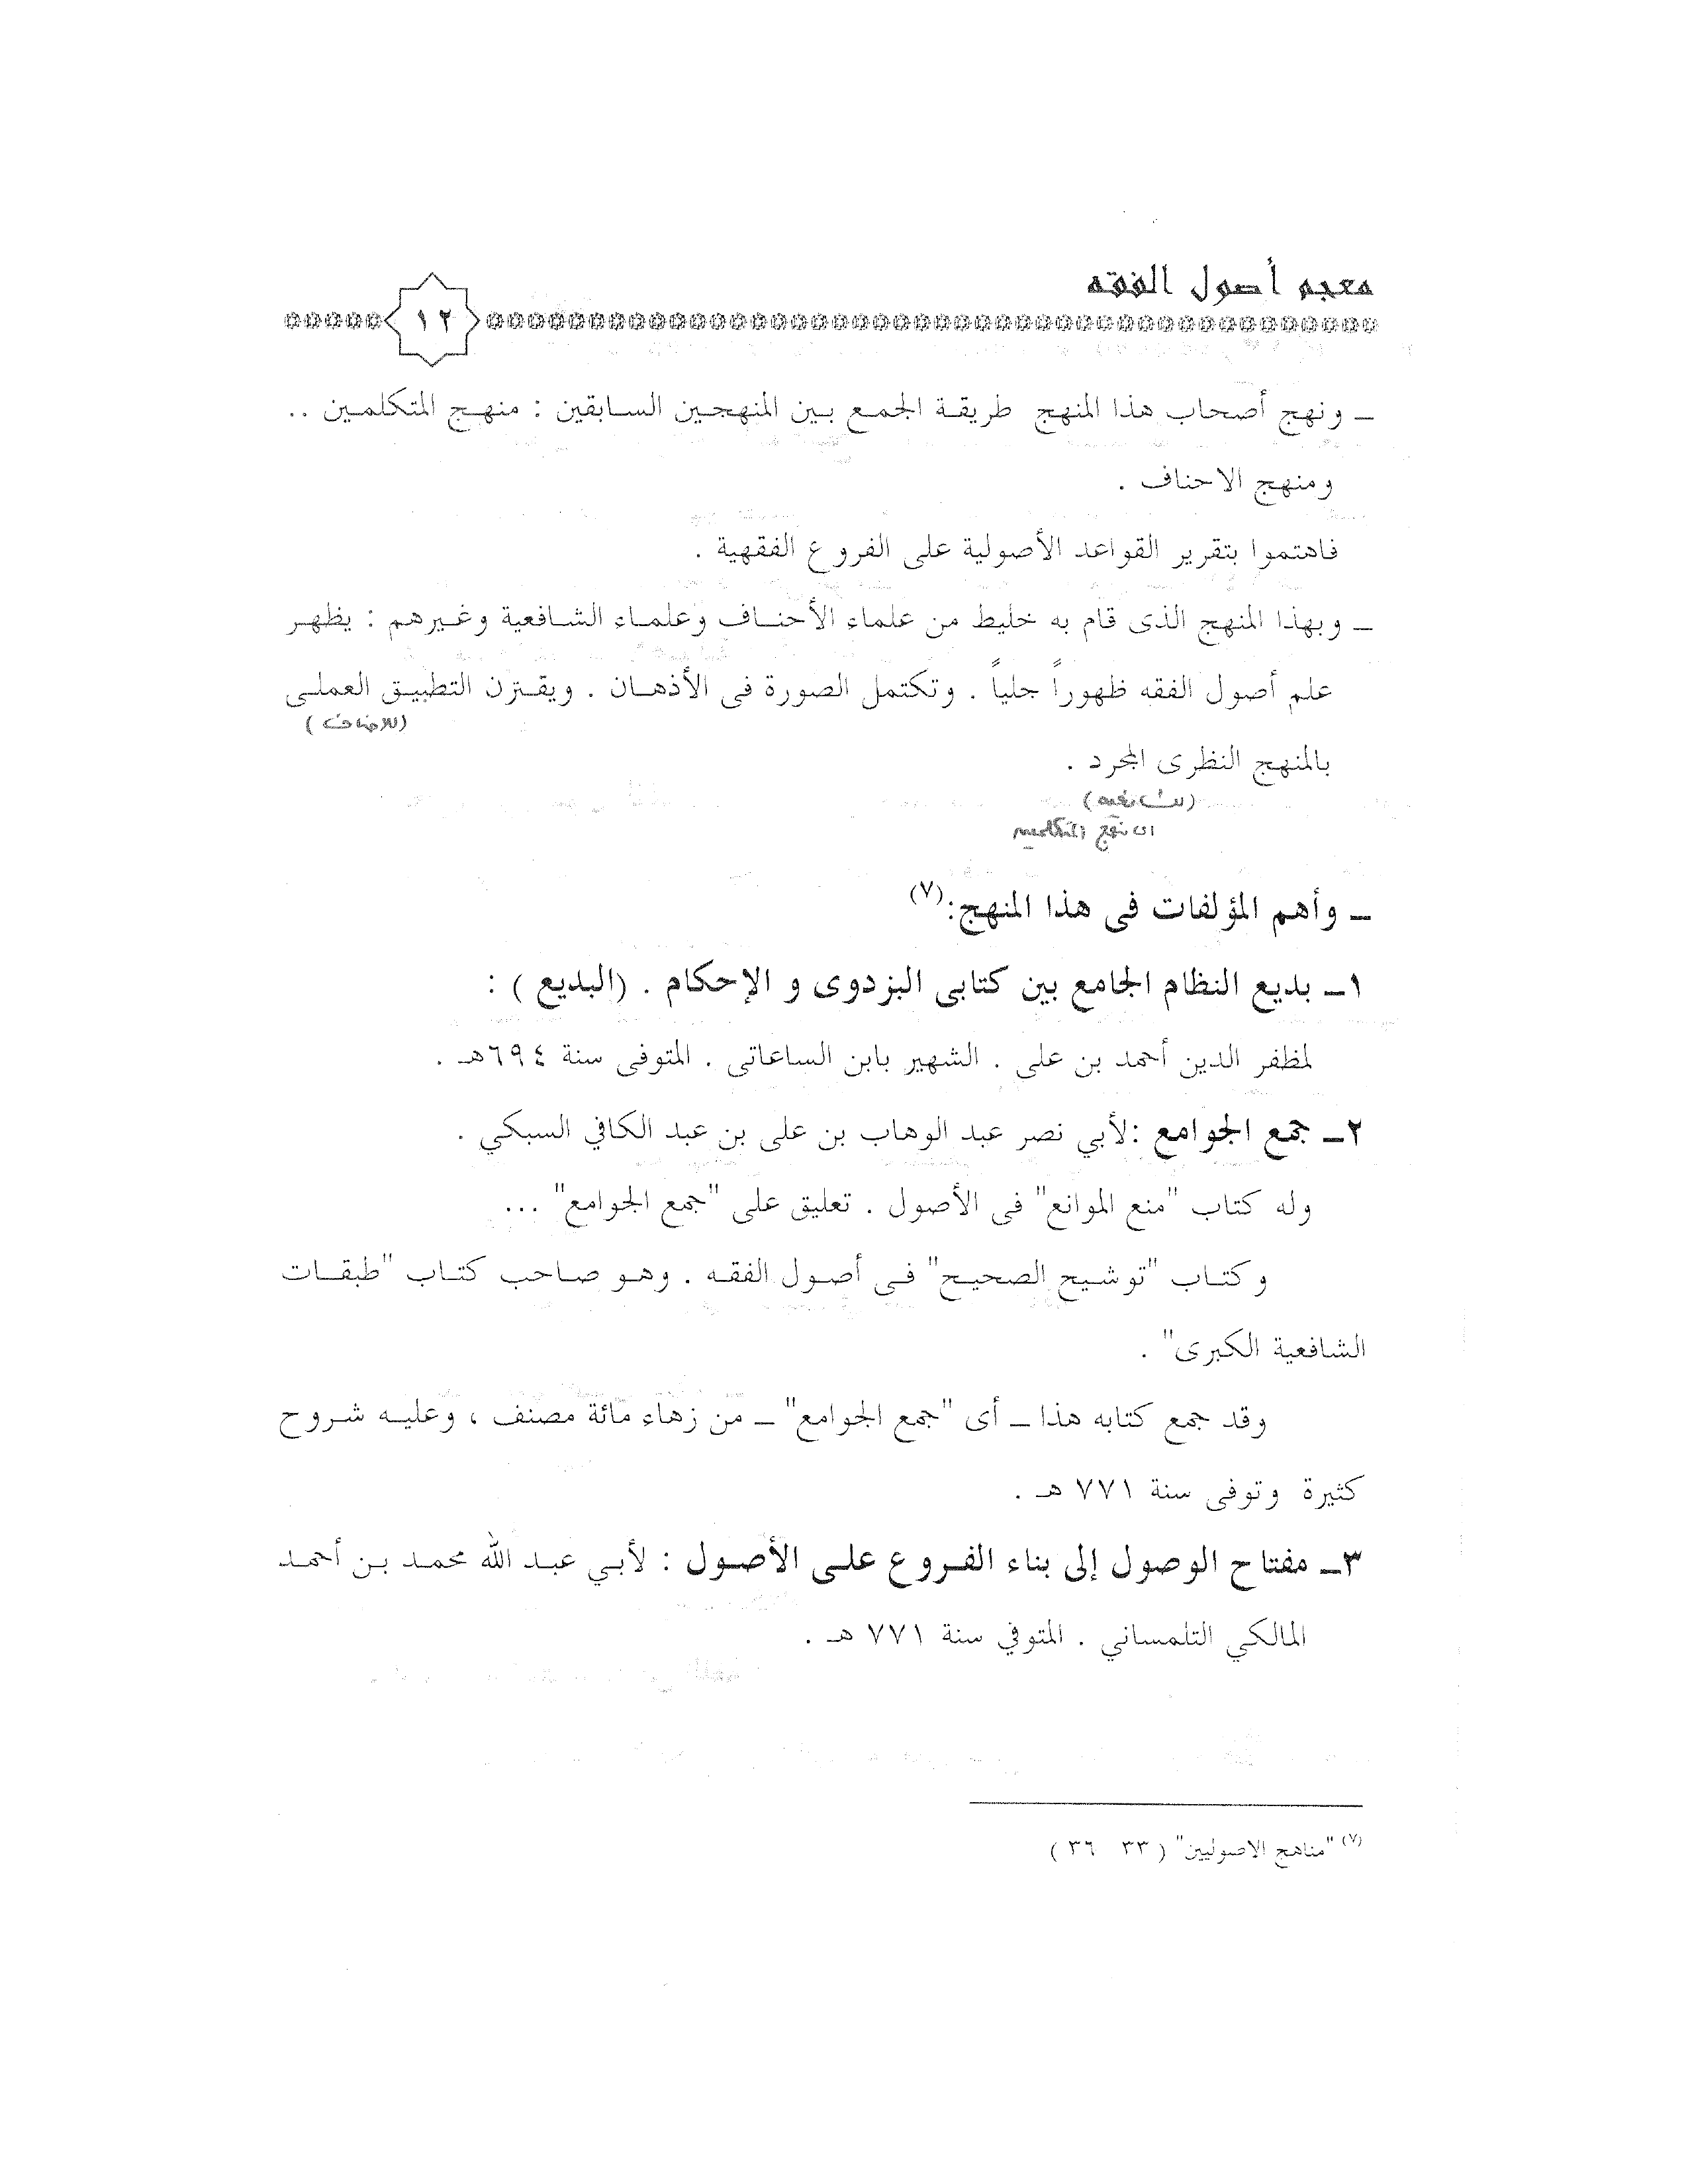 معجم أصول الفقه
١٢
ــ ونهج أصحاب هذا المنهج طريقة الجمع بين المنهجين السابقين : منهج المتكلمين ..
ومنهج الاحناف .
فاهتموا بتقرير القواعد الأصولية على الفروع الفقهية .
ــ وبهذا المنهج الذى قام به خليط من علماء الأحناف وعلماء الشافعية وغيرهم : يظهر
علم أصول الفقه ظهوراً جلياً . وتكتمل الصورة فى الأذهان . ويقترن التطبيق العملى
(للاحناف)
بالمنهج النظرى المجرد .
(للشافعيه)
اى نهج المتكلمين
ــ وأهم المؤلفات فى هذا المنهج:(٧)
١ــ بديع النظام الجامع بين كتابى البزدوى و الإحكام . (البديع ) :
لمظفر الدين أحمد بن على . الشهير بابن الساعاتى . المتوفى سنة ٦٩٤هـ .
٢ــ جمع الجوامع :لأبي نصر عبد الوهاب بن على بن عبد الكافي السبكي .
وله كتاب "منع الموانع" فى الأصول . تعليق على "جمع الجوامع" ...
وكتاب "توشيح الصحيح" فى أصول الفقه . وهو صاحب كتاب "طبقات
الشافعية الكبرى" .
وقد جمع كتابه هذا ــ أى "جمع الجوامع" ــ من زهاء مائة مصنف ، وعليه شروح
كثيرة وتوفى سنة ٧٧١ هـ .
٣ــ مفتاح الوصول إلى بناء الفروع على الأصول : لأبي عبد الله محمد بن أحمد
المالكي التلمساني . المتوفي سنة ٧٧١ هـ .
(٧) "مناهج الاصوليين" ( ٣٣ ٣٦ )